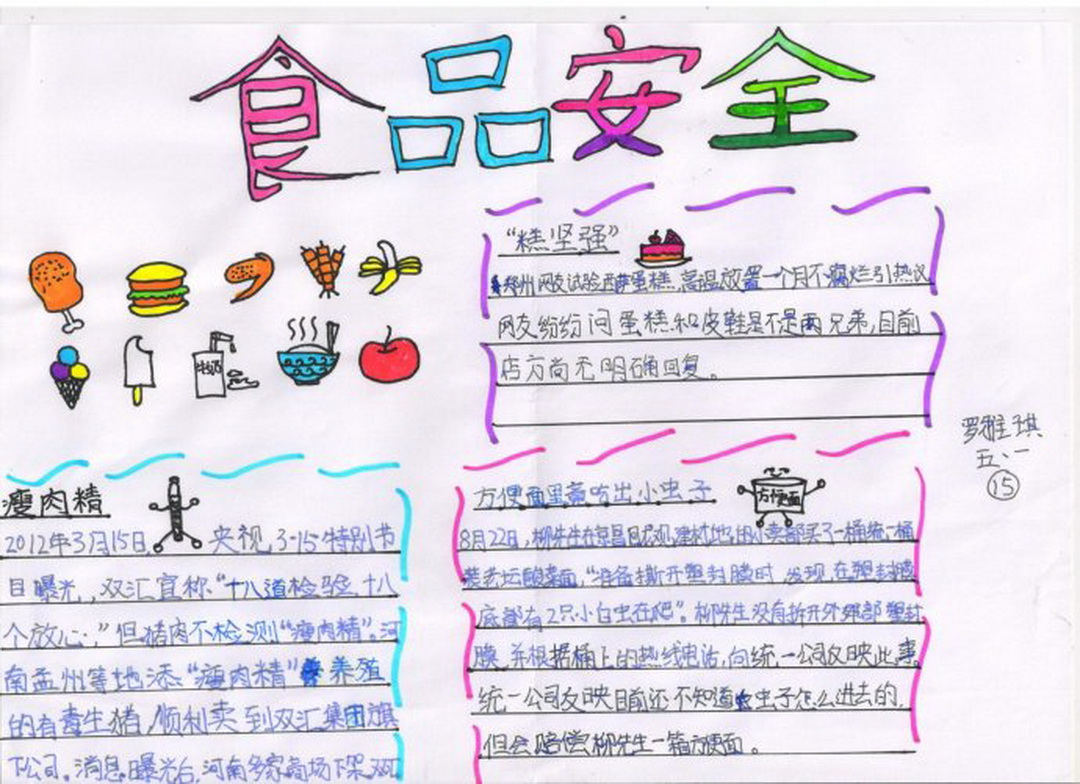 食品安全
“糕坚强”
郑州网友试验西萨蛋糕,高温放置一个月不腐烂引热议
网友纷纷问蛋糕和皮鞋是不是两兄弟,目前
店方尚无明确回复。
罗雅琪
五、一
15
牛奶
瘦肉精
2012年3月15日, 央视3·15特别节
目曝光,双汇宣称“十八道检验、十八
个放心,”但猪肉不检测“瘦肉精”。河
南孟州等地添“瘦肉精”养殖
的有毒生猪,顺利卖到双汇集团旗
下公司。消息曝光后,河南多家商场下架双汇
方便面里竟吃出小虫子
方便面
8月22日,柳先生在京昌 建材地 小卖部买了一桶统一桶
装老坛酸菜面,“准备撕开塑封膜时,发现在塑封膜
底部有2只小白虫在爬”。柳先生没有拆开外部塑封
膜,并根据桶上的热线电话,向统一公司反映此事,
统一公司反映目前还不知道虫子怎么进去的,
但会赔偿柳先生一箱方便面。